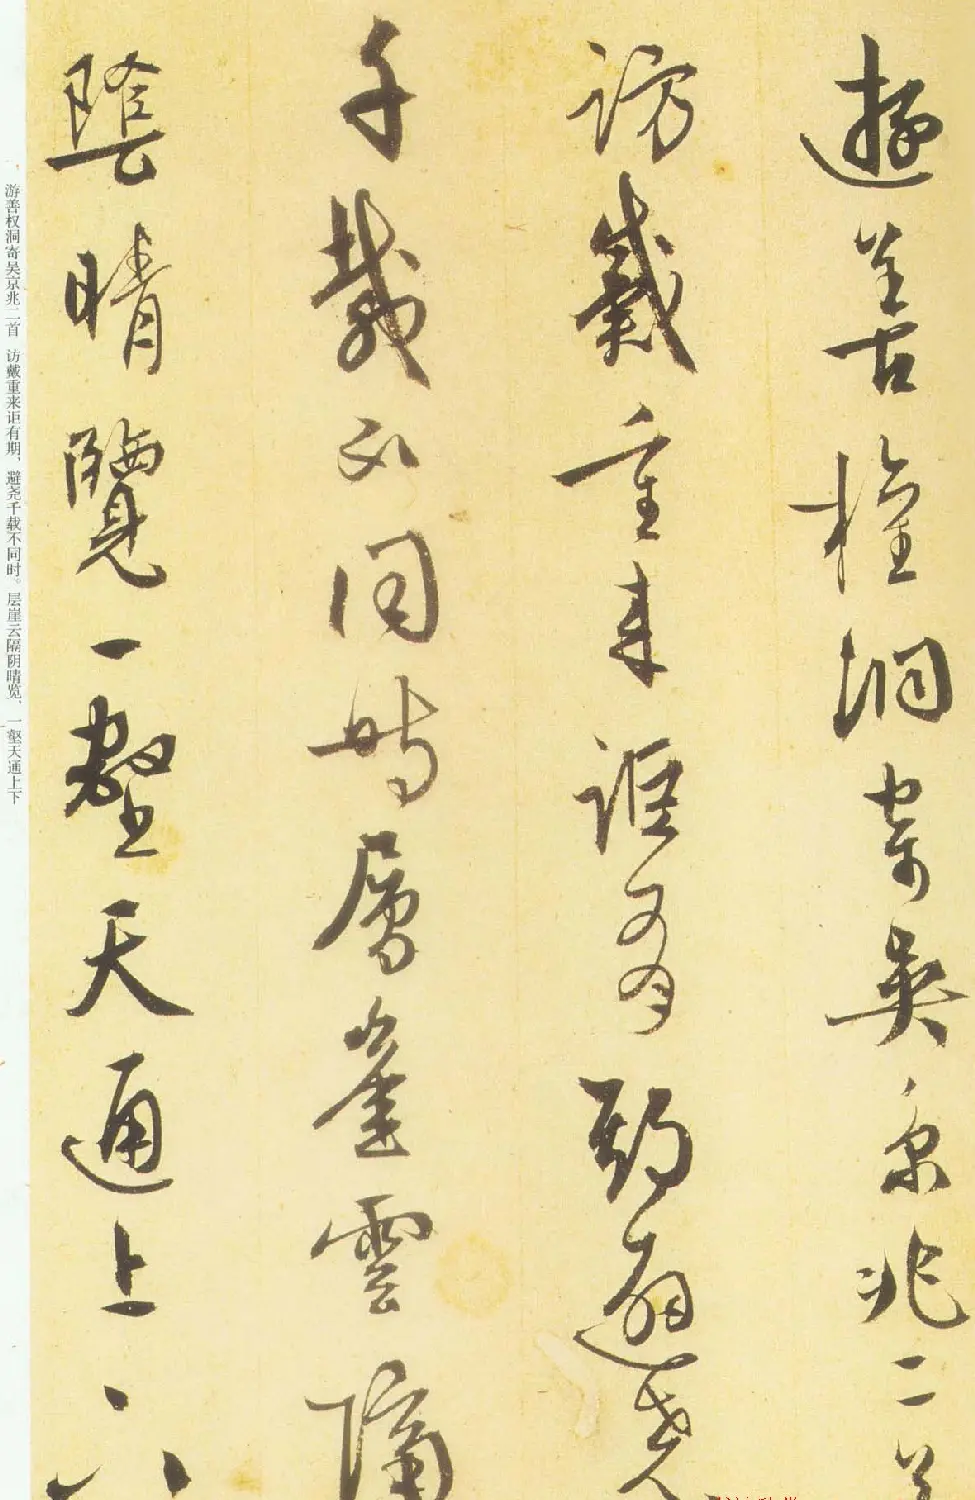 遊善權洞寄吳京兆二首
訪戴重来詎有期避尧
千載不同時層崖雲隔
陰晴覽一壑天通上下
游善权洞寄吴京兆二首 访戴重来讵有期、避尧千载不同时。层崖云隔阴晴览、一壑天通上下